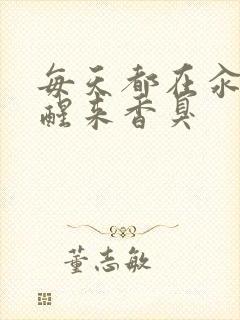 每天都在汆
醒来香臭
董志敏